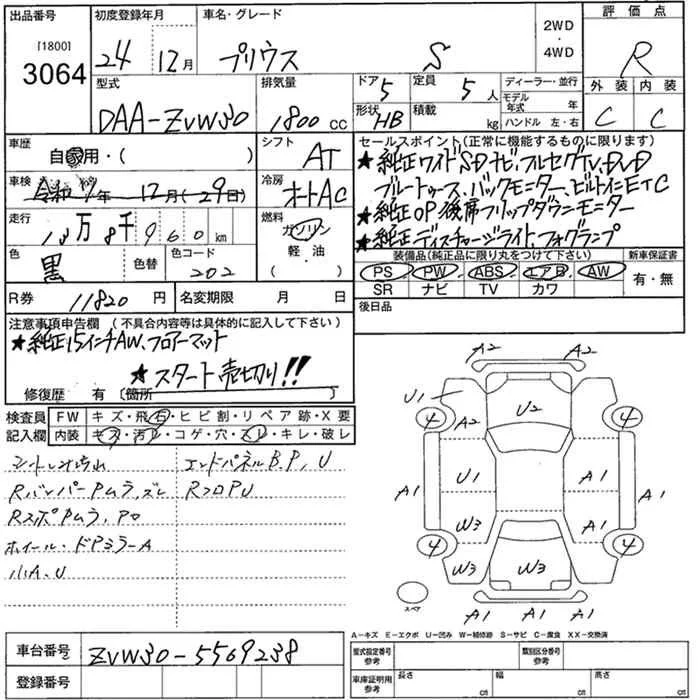 出品番号 初度登録年月 車名・グレード 2WD・4WD 評価点
[1800]
3064 24 12月 プリウス S R
型式 排気量 ドア 5 定員 5人 ディーラー・並行 外装 内装
DAA-ZVW30 1800 cc 形状 HB 積載 kg モデル年式 年 C C
ハンドル 左・右
車歴 シフト セールスポイント(正常に機能するものに限ります)
自家用・( ) AT ★純正ワイドSDナビ、フルセグTV、DVD
車検 冷房 ブルートゥース、バックモニター、ビルトインETC
令和 7年 12月(29日) オートAC ★純正OP後席フリップダウンモニター
走行 燃料 ★純正ディスチャージライト、フォグランプ
万 8千960km ガソリン 装備品(純正品に限り丸をつけて下さい) 新車保証書
色 色替 色コード 軽・油 PS PW ABS エアB AW 有・無
黒 202 SR ナビ TV カワ
R券 11820円 名変期限 月 日 後日品
注意事項申告欄 (不具合内容等は具体的に記入して下さい)
★純正15インチAW、フロアーマット
★スタート売切り!!
修復歴 有 〔箇所 〕
検査員 FW キズ・飛石・ヒビ割・リペア跡・X要
記入欄 内装 キズ・汚レ・コゲ・穴・スレ・キレ・破レ
エンドパネルB.P,U
Rバンパー Pムラ,ズレ
Rスポ Pムラ,
ホイール・ドアミラーA
小A.U
A2 A2
U1 A2 U2
4 4
A1 U1 A1 A1
W3 A1
4 W3 4
スペア A1 A1 A1
A-キズ E-エクボ U-凹み W-補修跡 S-サビ C-腐食 XX-交換済
車台番号 ZVW30-5569238 型式指定番号参考 類別区分番号参考
登録番号 車庫証明用参考 長さ cm 幅 cm 高さ cm